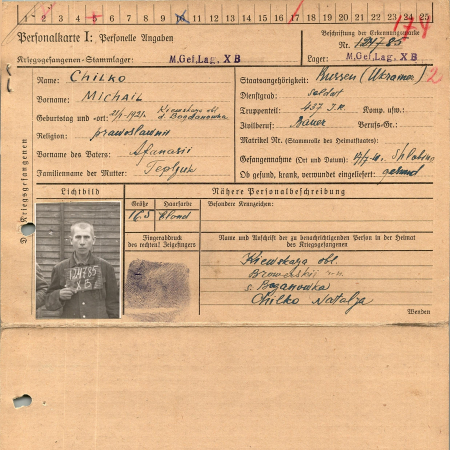 1 2 3 4 5 6 7 8 9 10 11 12 13 14 15 16 17 18 19 20 21 22 23 24 25
174
Personalkarte I: Personelle Angaben
Beschriftung der Erkennungsmarke
Nr. 124785
Kriegsgefangenen-Stammlager: M.Gef.Lag. X B
Lager: M.Gef.Lag. X B
Name: Chilko
Staatsangehörigkeit: Russen (Ukrainer) 2
Vorname: Michail
Dienstgrad: Soldat
Truppenteil: 457 J.R. Komp. usw.:
Geburtstag und -ort: 21/1-1921. Kiewskaja obl. d. Bogdanowka
Zivilberuf: Bauer Berufs-Gr.:
Religion: prawoslawni
Matrikel Nr. (Stammrolle des Heimatstaates):
Vorname des Vaters: Afanasii
Gefangennahme (Ort und Datum): 17/7-41.
Familienname der Mutter: Tepljuk
Ob gesund, krank, verwundet eingeliefert: gesund
Des Kriegsgefangenen
Lichtbild
Nähere Personalbeschreibung
Größe Haarfarbe
Besondere Kennzeichen:
163 blond
Fingerabdruck
des rechten! Zeigefingers
Name und Anschrift der zu benachrichtigenden Person in der Heimat
des Kriegsgefangenen
124785
X B
Kiewskaja obl.
s. Boganowka
Chilko Natalja
Wenden